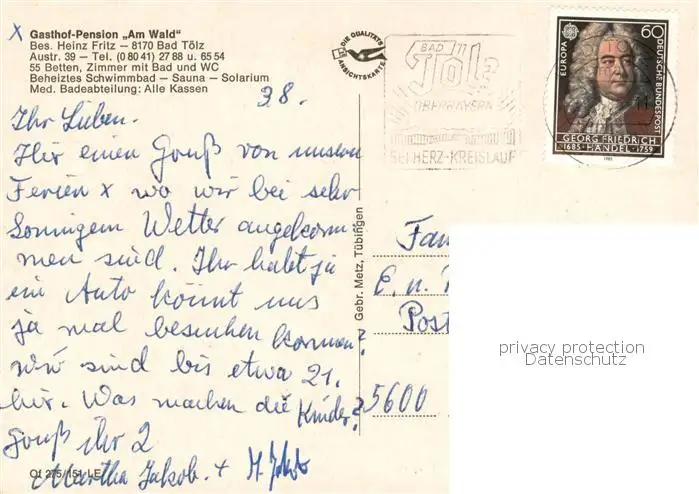 x Gasthof-Pension „Am Wald"
Bes. Heinz Fritz — 8170 Bad Tölz
Austr. 39 — Tel. (0 80 41) 27 88 u. 65 54
55 Betten, Zimmer mit Bad und WC
Beheiztes Schwimmbad — Sauna — Solarium
Med. Badeabteilung: Alle Kassen
DIE QUALITÄTS
ANSICHTSKARTE
BAD
Tölz
OBERBAYERN
BEI HERZ-KREISLAUF
EUROPA
60
DEUTSCHE BUNDESPOST
GEORG FRIEDRICH
1685 · HÄNDEL · 1759
9.8.
Ihr Lieben.
Hir einen Gruß von unseren
Ferien x wo wir bei sehr
Sonnigem Wetter angekom
men sind. Ihr habt ja
ein Auto könnt uns
ja mal besuchen kommen?
wir sind bis etwa 21.
hir. Was machen die Kinder?
Gruß ihr 2
Martha Jakob. +
Gebr. Metz, Tübingen
Fam
E. n.
Post
5600
privacy protection
Datenschutz